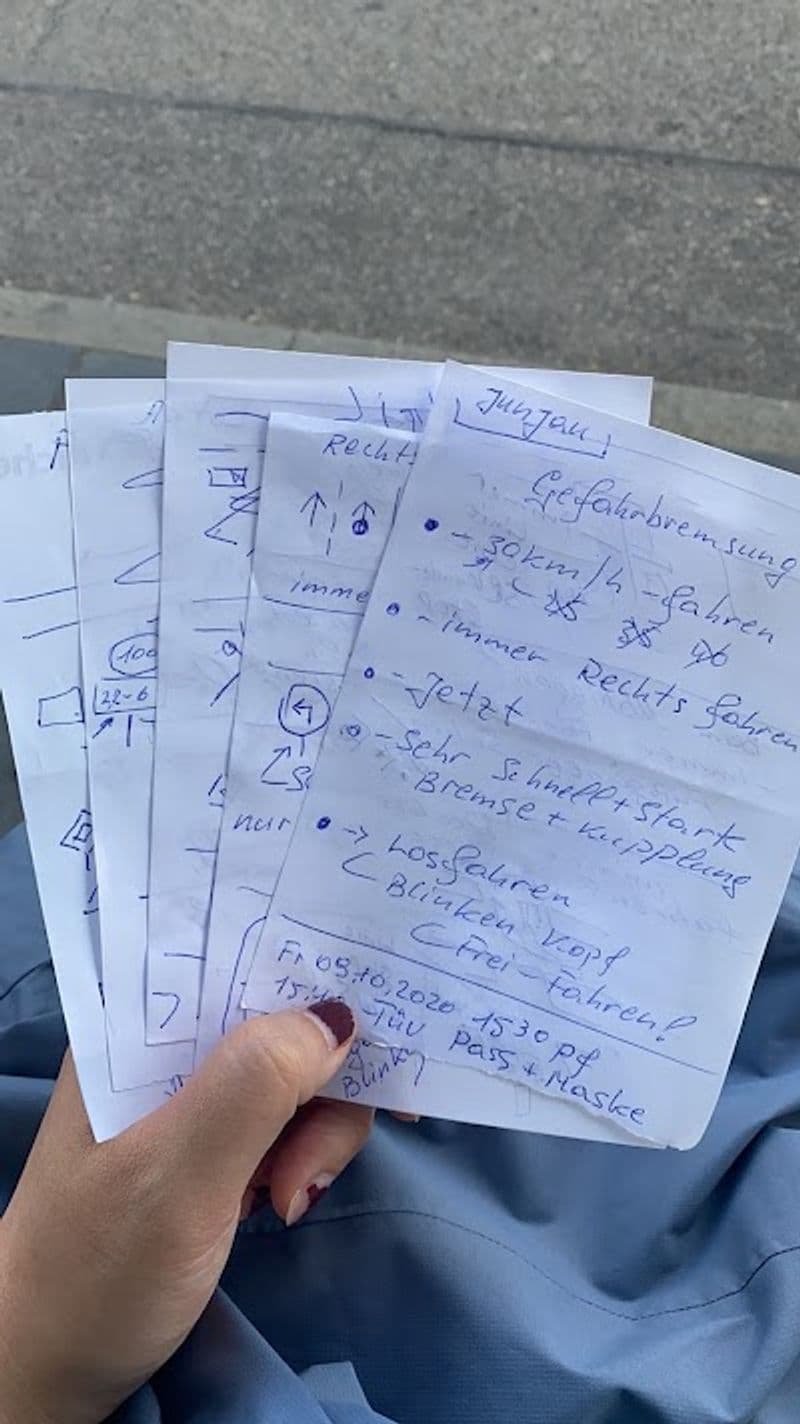 Gefahrbremsung
- 30km/h - fahren
- immer Rechts fahren
- Jetzt
- Sehr Schnell + Stark
Bremse + Kupplung
-> Losfahren
Blinken Kopf
Frei - Fahren!
Fr 09.10.2020 1530 Pf
TÜV Pass + Maske
Rechts
imme
nur
Blinky
100
22-6